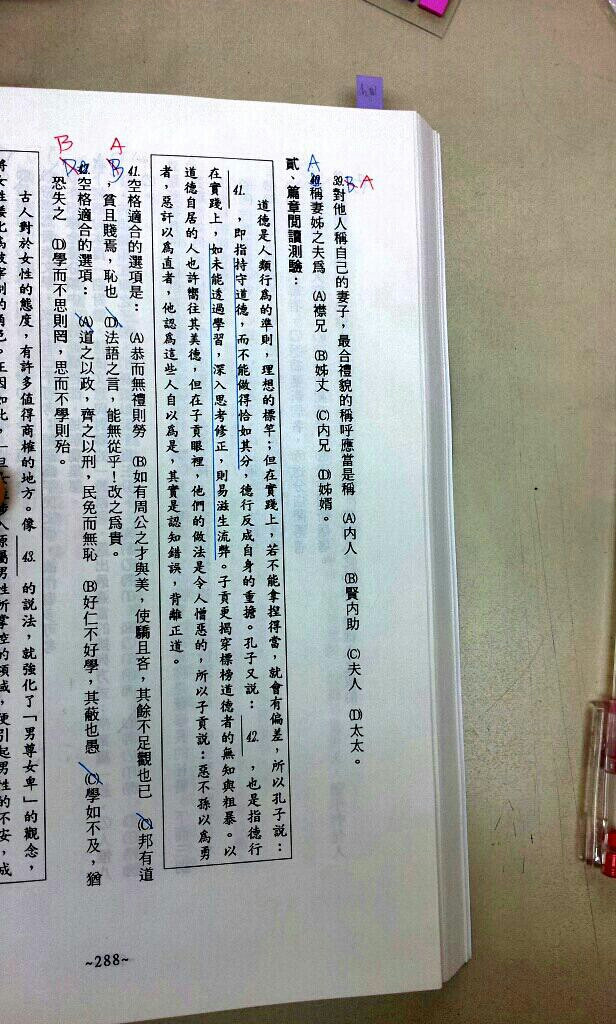 39.對他人稱自己的妻子，最合禮貌的稱呼應當是稱　(A)內人　(B)賢內助　(C)夫人　(D)太太。
B.A
40.稱妻姊之夫為　(A)襟兄　(B)姊丈　(C)內兄　(D)姊婿。
A
貳、篇章閱讀測驗：
道德是人類行為的準則，理想的標竿；但在實踐上，若不能拿捏得當，就會有偏差，所以孔子說：
41.，即指持守道德，而不能做得恰如其分，德行反成自身的重擔。孔子又說：42.，也是指德行
在實踐上，如未能透過學習，深入思考修正，則易滋生流弊。子貢更揭穿標榜道德者的無知與粗暴。以
道德自居的人也許嚮往其美德，但在子貢眼裡，他們的做法是令人憎惡的，所以子貢說：惡不孫以為勇
者，惡訐以為直者，他認為這些人自以為是，其實是認知錯誤，背離正道。
41.空格適合的選項是：　(A)恭而無禮則勞　(B)如有周公之才與美，使驕且吝，其餘不足觀也已　(C)邦有道
A
B
，貧且賤焉，恥也　(D)法語之言，能無從乎！改之為貴。
42.空格適合的選項：　(A)道之以政，齊之以刑，民免而無恥　(B)好仁不好學，其蔽也愚　(C)學如不及，猶
B
恐失之　(D)學而不思則罔，思而不學則殆。
古人對於女性的態度，有許多值得商榷的地方。像43.的說法，就強化了「男尊女卑」的觀念，
~288~